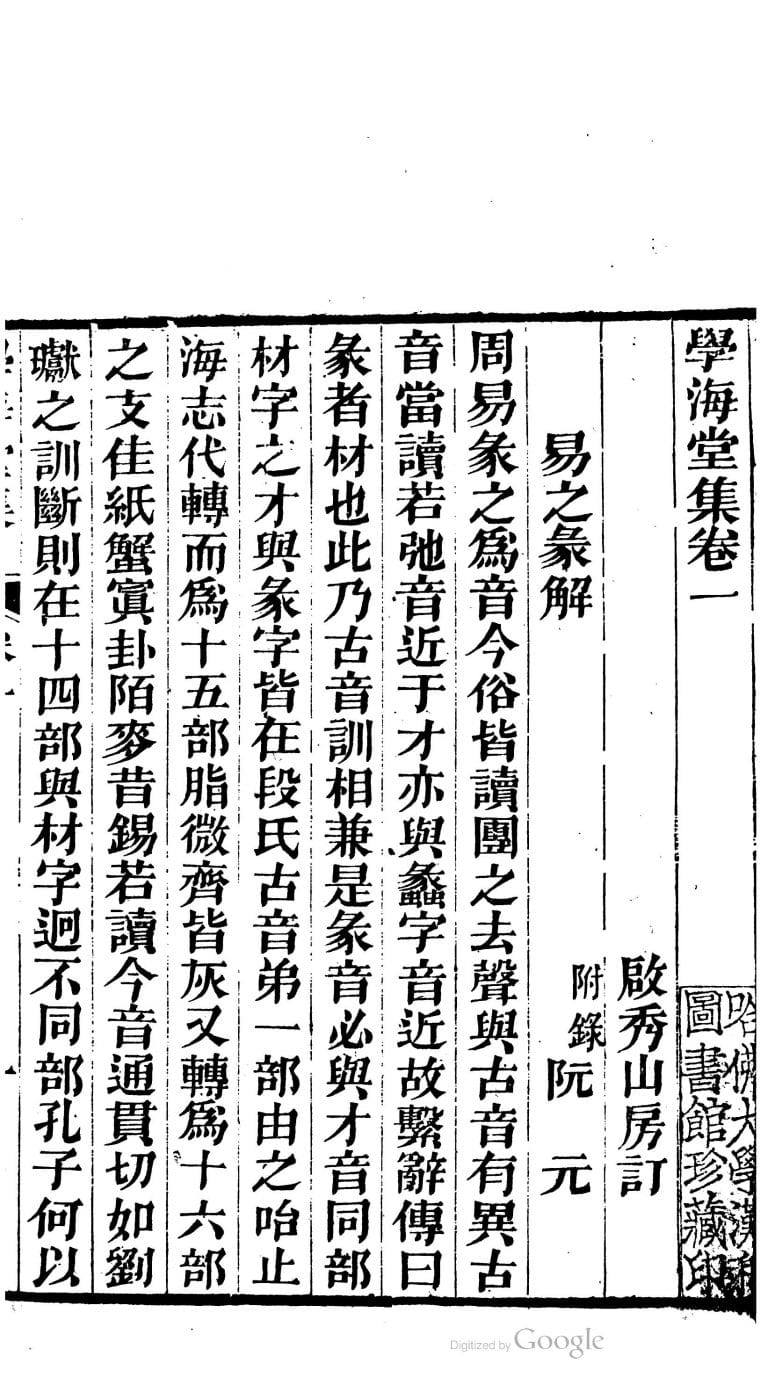 學海堂集卷一
哈佛大學漢和
圖書館珍藏印
啟秀山房訂
易之彖解 附錄 阮元
周易彖之爲音今俗皆讀團之去聲與古音有異古
音當讀若弛音近于才亦與蠡字音近故繫辭傳曰
彖者材也此乃古音訓相兼是彖音必與才音同部
材字之才與彖字皆在段氏古音弟一部由之咍止
海志代轉而爲十五部脂微齊皆灰又轉爲十六部
之支佳紙蟹寘卦陌麥昔錫若讀今音通貫切如劉
瓛之訓斷則在十四部與材字迥不同部孔子何以
Digitized by Google